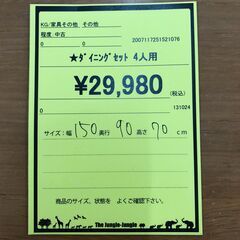 KG/家具その他 その他
程度 中古
0 0 2007117251521076
★ダイニングセット 4人用
¥29,980
(税込)
0 131024
サイズ:幅 150 奥行 90 高さ 70 cm
商品のサイズ、状態を よくご確認下さい。
The Jungle-Jungle